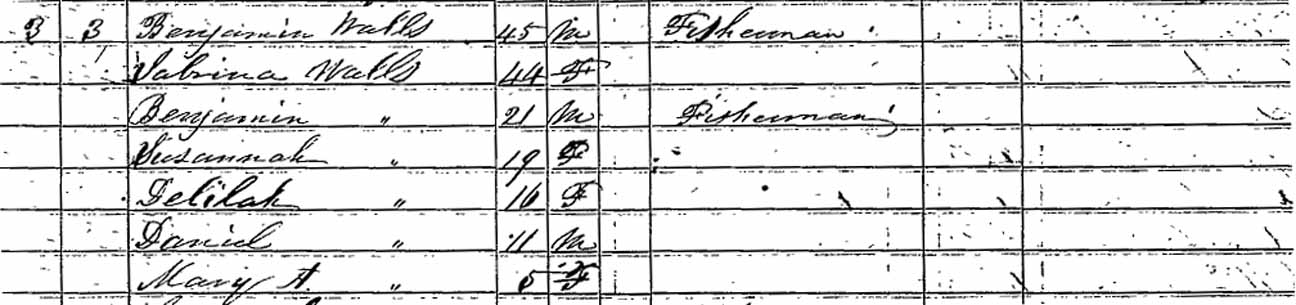 3 3 Benjamin Walls 45 M Fisherman
Sabrina Walls 44 F
Benjamin " 21 M Fisherman
Susannah " 19 F
Delilah " 16 F
Daniel " 11 M
Mary A. " 5 F